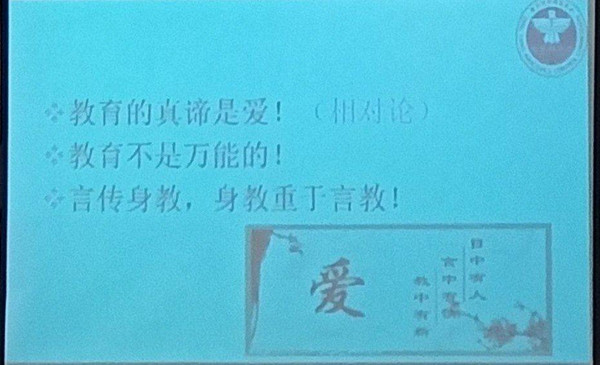 教育的真谛是爱！（相对论）
教育不是万能的！
言传身教，身教重于言教！
爱
目中有人
言中有情
教中有新